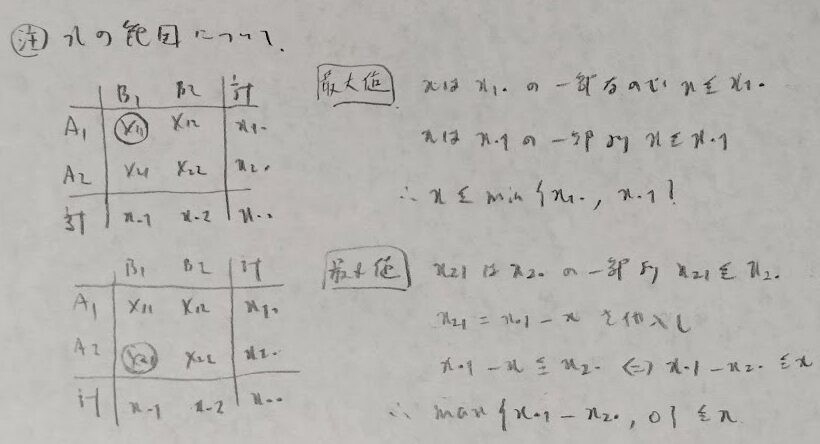 注) xの範囲について.
B₁ B₂ 計
A₁ X₁₁ X₁₂ x₁.
A₂ X₂₁ X₂₂ x₂.
計 x.₁ x.₂ x..
最大値 xは x₁. の一部なので x ≦ x₁.
xは x.₁ の一部より x ≦ x.₁
∴ x ≦ min {x₁., x.₁}
B₁ B₂ 計
A₁ X₁₁ X₁₂ x₁.
A₂ X₂₁ X₂₂ x₂.
計 x.₁ x.₂ x..
x₂₁ は x₂. の一部より x₂₁ ≦ x₂.
x₂₁ = x.₁ - x を代入し
x.₁ - x ≦ x₂. ⇔ x.₁ - x₂. ≦ x
∴ max {x.₁ - x₂., 0} ≦ x